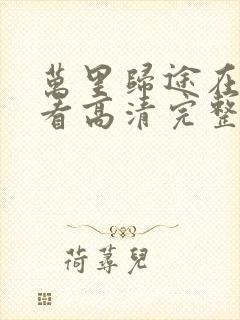 萬里歸途在
看高清完整
荷蕁兒